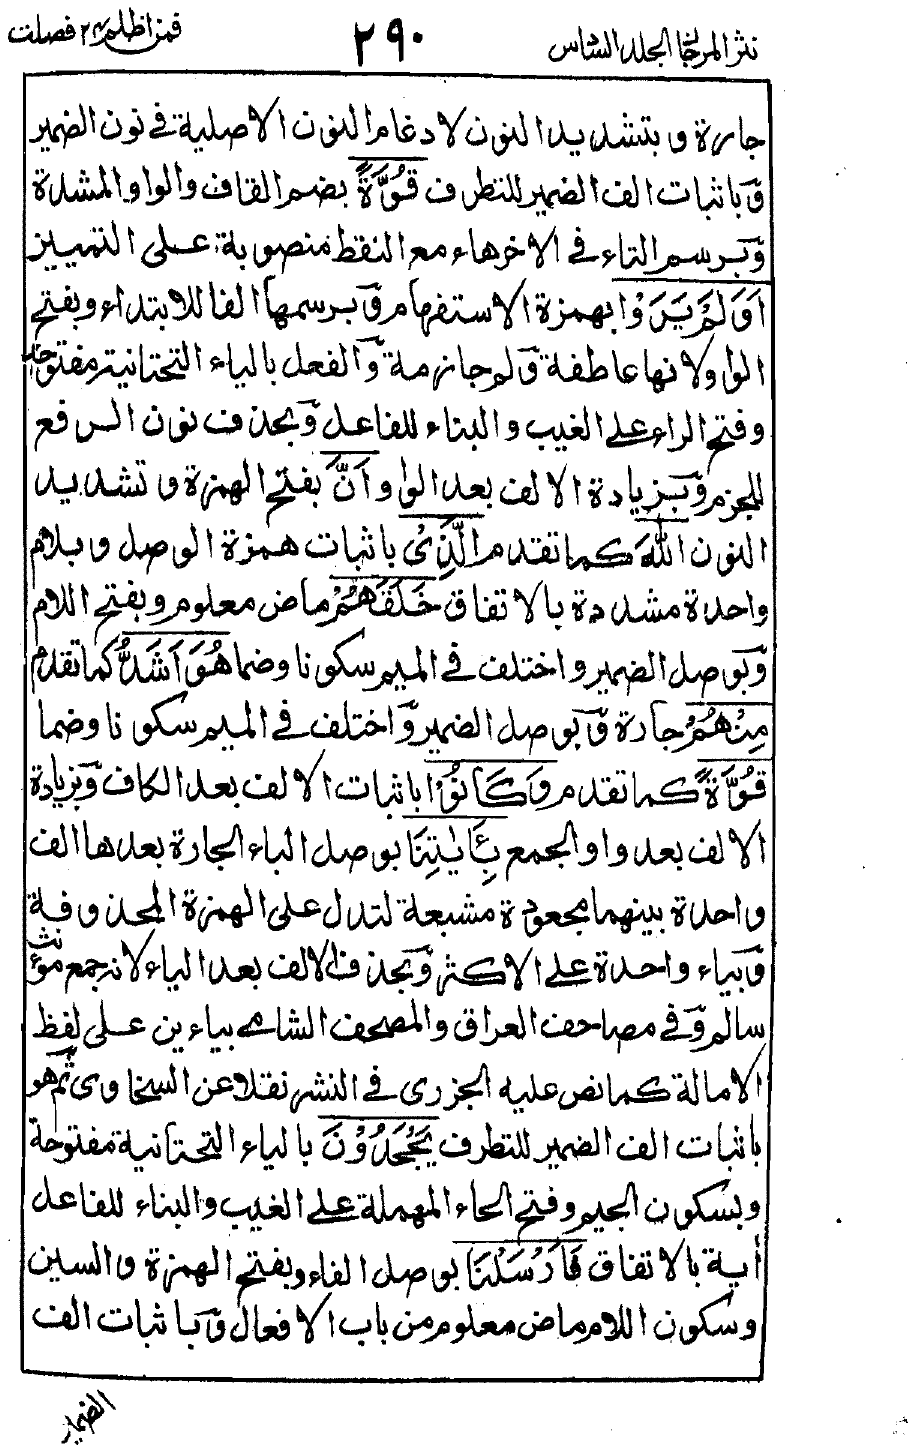 نثر المرجان الجلد السادس
٢٩٠
فمن اظلم ٢٤ فصلت
جارة و بتشديد النون لادغام النون الاصلية في نون الضمير
وباثبات الف الضمير للتطرف قُوَّةً بضم القاف والواو المشددة
وبرسم التاء في الاخر هاء مع النقط منصوبة على التمييز
اَوَلَمْ يَرَوْا بهمزة الاستفهام وبرسمها الفا للابتداء وبفتح
الواو لانها عاطفة ولم جازمة والفعل بالياء التحتانية مفتوحة
وفتح الراء على الغيب والبناء للفاعل وبحذف نون الرفع
للجزم وبزيادة الالف بعد الواو اَنَّ بفتح الهمزة وتشديد
النون اللهَ كما تقدم الَّذِيْ باثبات همزة الوصل وبلام
واحدة مشددة بالاتفاق خَلَقَهُمْ ماض معلوم وبفتح اللام
وبوصل الضمير واختلف في الميم سكونا وضما هُوَ اَشَدُّ كما تقدم
مِنْهُمْ جارة وبوصل الضمير واختلف في الميم سكونا وضما
قُوَّةً كما تقدم وَكَانُوْا باثبات الالف بعد الكاف وبزيادة
الالف بعد واو الجمع بِئَايٰتِنَا بوصل الباء الجارة بعدها الف
واحدة بينهما مجعودة مشبعة لتدل على الهمزة المحذوفة
وبياء واحدة على الاكثر وبحذف الالف بعد الياء لانه جمع مؤنث
سالم وفي مصاحف العراق والمصحف الشامي بياءين على لفظ
الامالة كما نص عليه الجزري في النشر نقلا عن السخاوي ثم هو
باثبات الف الضمير للتطرف يَجْحَدُوْنَ بالياء التحتانية مفتوحة
وبسكون الجيم وفتح الحاء المهملة على الغيب والبناء للفاعل
أية بالاتفاق فَاَرْسَلْنَا بوصل الفاء وبفتح الهمزة والسين
وسكون اللام ماض معلوم من باب الافعال وباثبات الف
الضمير